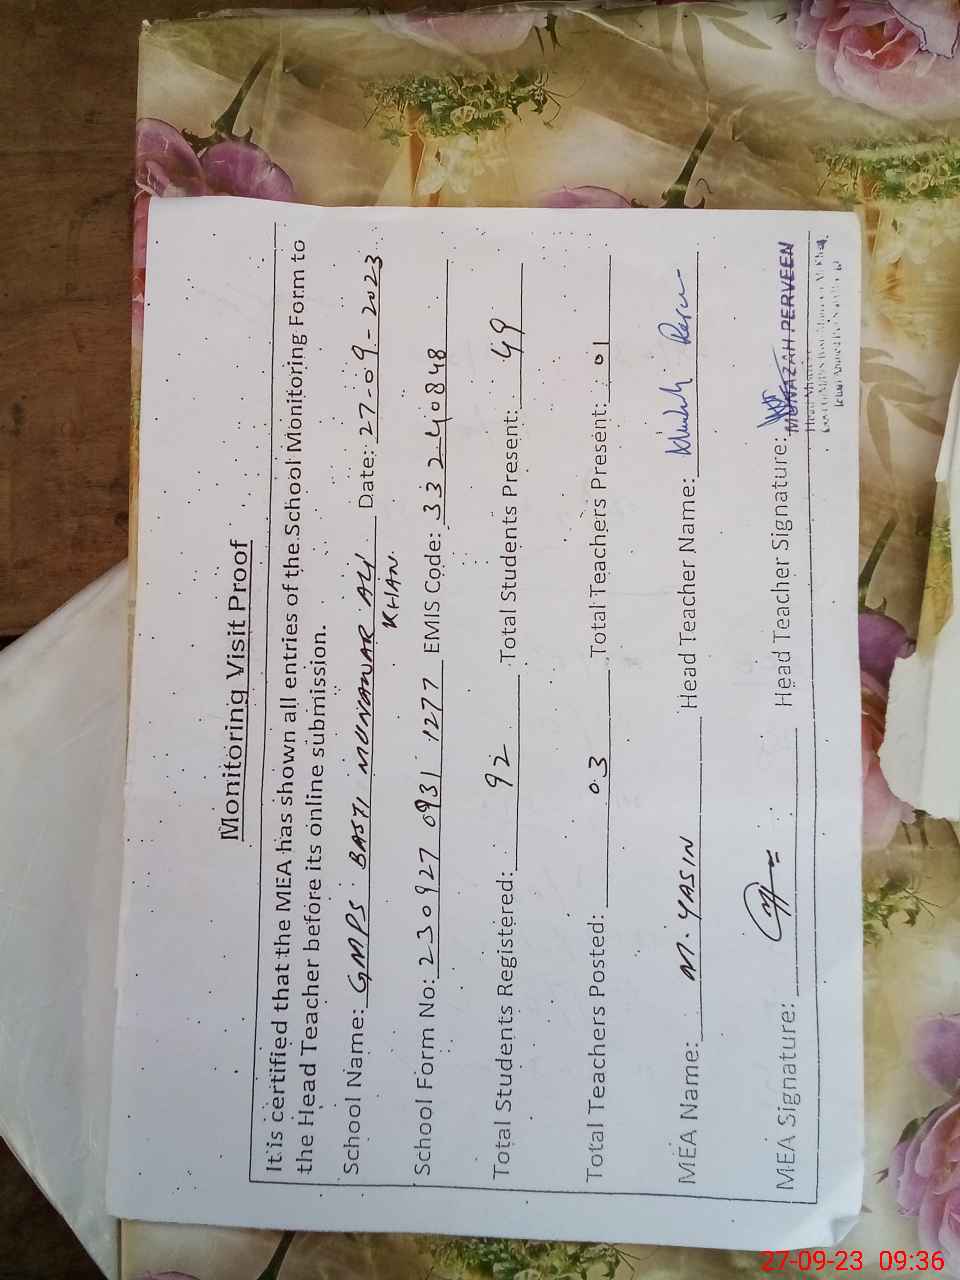 Monitoring Visit Proof
It is certified that the MEA has shown all entries of the School Monitoring Form to
the Head Teacher before its online submission.
School Name: GMPS BASTI MUNAWAR ALI Date: 27-09-2023
KHAN
School Form No: 230927 0931 1277 EMIS Code: 33240848
Total Students Registered: 92 Total Students Present: 49
Total Teachers Posted: 03 Total Teachers Present: 01
MEA Name: M. YASIN Head Teacher Name:
MEA Signature: Head Teacher Signature:
MUNAZAH PERVEEN
27-09-23 09:36